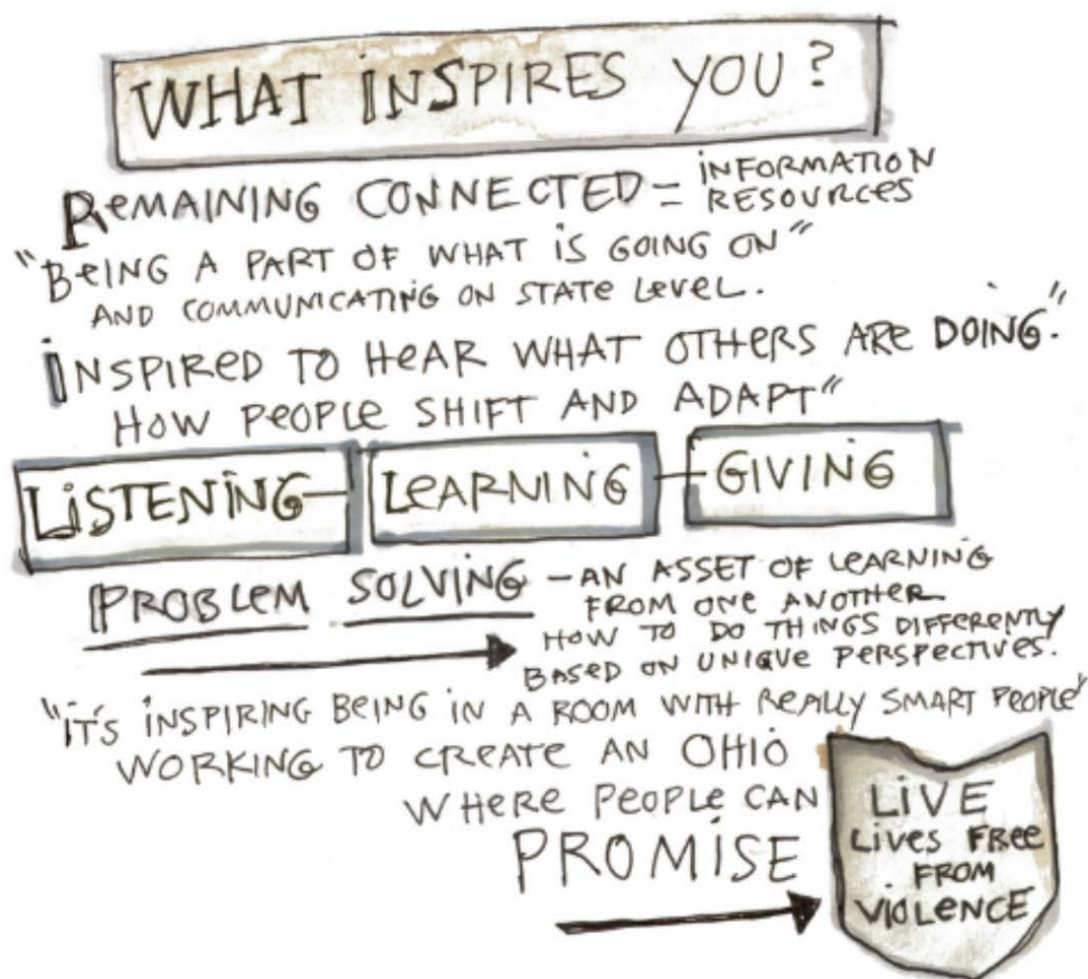 WHAT INSPIRES YOU?
REMAINING CONNECTED = INFORMATION
RESOURCES
"BEING A PART OF WHAT IS GOING ON"
AND COMMUNICATING ON STATE LEVEL.
INSPIRED TO HEAR WHAT OTHERS ARE DOING."
HOW PEOPLE SHIFT AND ADAPT"
LISTENING - LEARNING - GIVING
PROBLEM SOLVING - AN ASSET OF LEARNING
FROM ONE ANOTHER
HOW TO DO THINGS DIFFERENTLY
BASED ON UNIQUE PERSPECTIVES.
"IT'S INSPIRING BEING IN A ROOM WITH REALLY SMART PEOPLE"
WORKING TO CREATE AN OHIO
WHERE PEOPLE CAN
PROMISE
LIVE
LIVES FREE
FROM
VIOLENCE